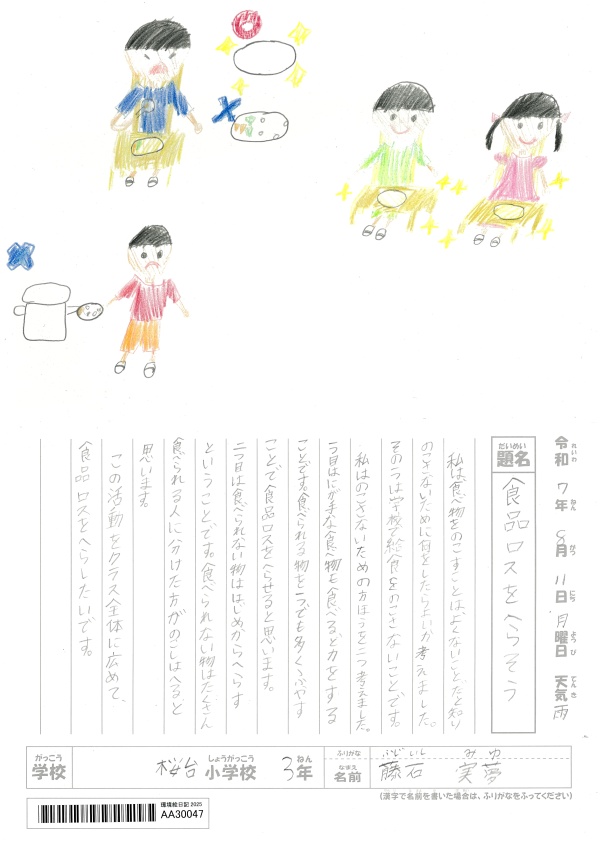 令和 7年 8月 11日 月曜日 天気 雨
れいわ ねん がつ にち ようび てんき
だいめい
題名 食品ロスをへらそう
私は食べ物をのこすことはよくないことだと知り
のこさないために何をしたらよいか考えました。
その一つは学校で給食をのこさないことです。
私はのこさないための方ほうを二つ考えました。
一つ目はにが手な食べ物も食べるど力をする
ことです。食べられる物を一つでも多くふやす
ことで食品ロスをへらせると思います。
二つ目は食べられない物ははじめからへらす
ということです。食べられない物はたくさん
食べられる人に分けた方がのこしはへると
思います。
この活動をクラス全体に広めて、
食品ロスをへらしたいです。
がっこう しょうがっこう ねん
学校 桜台 小学校 3年
ふりがな ふじいし みゆ
なまえ
名前 藤石 実夢
(漢字で名前を書いた場合は、ふりがなをふってください)
環境絵日記 2025
AA30047